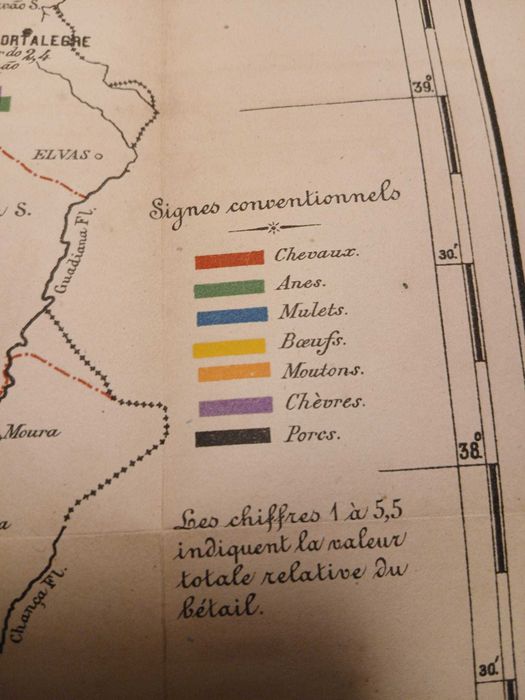 ORTALEGRE
2,4
39°
ELVAS
S.
Guadiana Fl.
Signes conventionnels
30'
Chevaux.
Anes.
Mulets.
Bœufs.
Moutons.
Chèvres.
Porcs.
Moura
38°
Les chiffres 1 à 5,5
indiquent la valeur
totale relative du
bétail.
Chança Fl.
30'